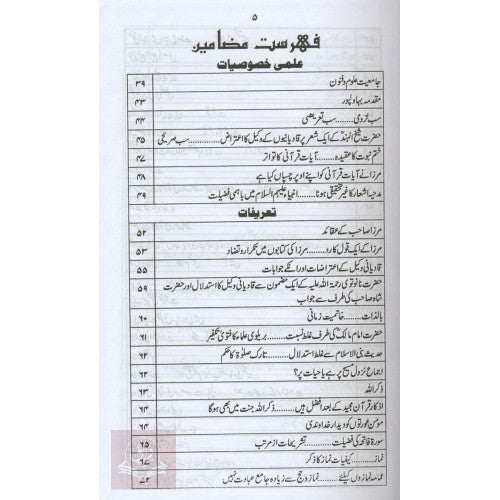 ۵
فہرست مضامین
علمی خصوصیات
جامعیت علوم و فنون ۳۹
مقدمہ بہاولپور ۴۳
سب لزومی.........سب تعریضی ۴۴
حضرت شیخ الہندؒ کے ایک شعر پر قادیانیوں کے وکیل کا اعتراض.........سب صریحی ۴۵
ختم نبوت کا عقیدہ.........آیات قرآنی کا تواتر ۴۷
مرزا نے آیات قرآنی کو اپنے اوپر چسپاں کیا ہے ۴۸
مدحیہ اشعار کا غیر تحقیقی ہونا.........انبیاء علیہم السلام میں باہمی فضیلت ۴۹
تعریفات
مرزا صاحب کے عقائد ۵۲
مرزا کے ایک قول کا رد.........مرزا کی کتابوں میں تکرار و تضاد ۵۳
قادیانی وکیل کے اعتراضات اور انکے جوابات ۵۵
حضرت نانوتوی رحمۃ اللہ علیہ کے ایک مضمون سے قادیانی وکیل کا استدلال اور حضرت ۵۹
شاہ صاحب کی طرف سے جواب
بالذات.........خاتمیت زمانی ۶۰
حضرت امام مالکؒ کی طرف غلط نسبت.........بریلوی علماء کا فتویٰ تکفیر ۶۱
حدیث بنی الاسلام سے غلط استدلال.........تارک صلوٰۃ کا حکم ۶۲
اجماع نزول مسیح پر ہے یا حیات پر؟ ۶۲
ذکر اللہ ۶۳
اذکار قرآن مجید کے بعد افضل ہیں.........ذکر اللہ جنت میں بھی ہوگا ۶۴
مؤمن عورتوں کو دیدار خداوندی ۶۴
سورۃ فاتحہ کی فضیلت.........تشریحات از مرتب ۶۵
نماز.........کیفیات نماز کا ذکر ۶۷
عمامہ نمازوں کیلئے.........نماز و حج سے زیادہ جامع عبادت نہیں ۷۲